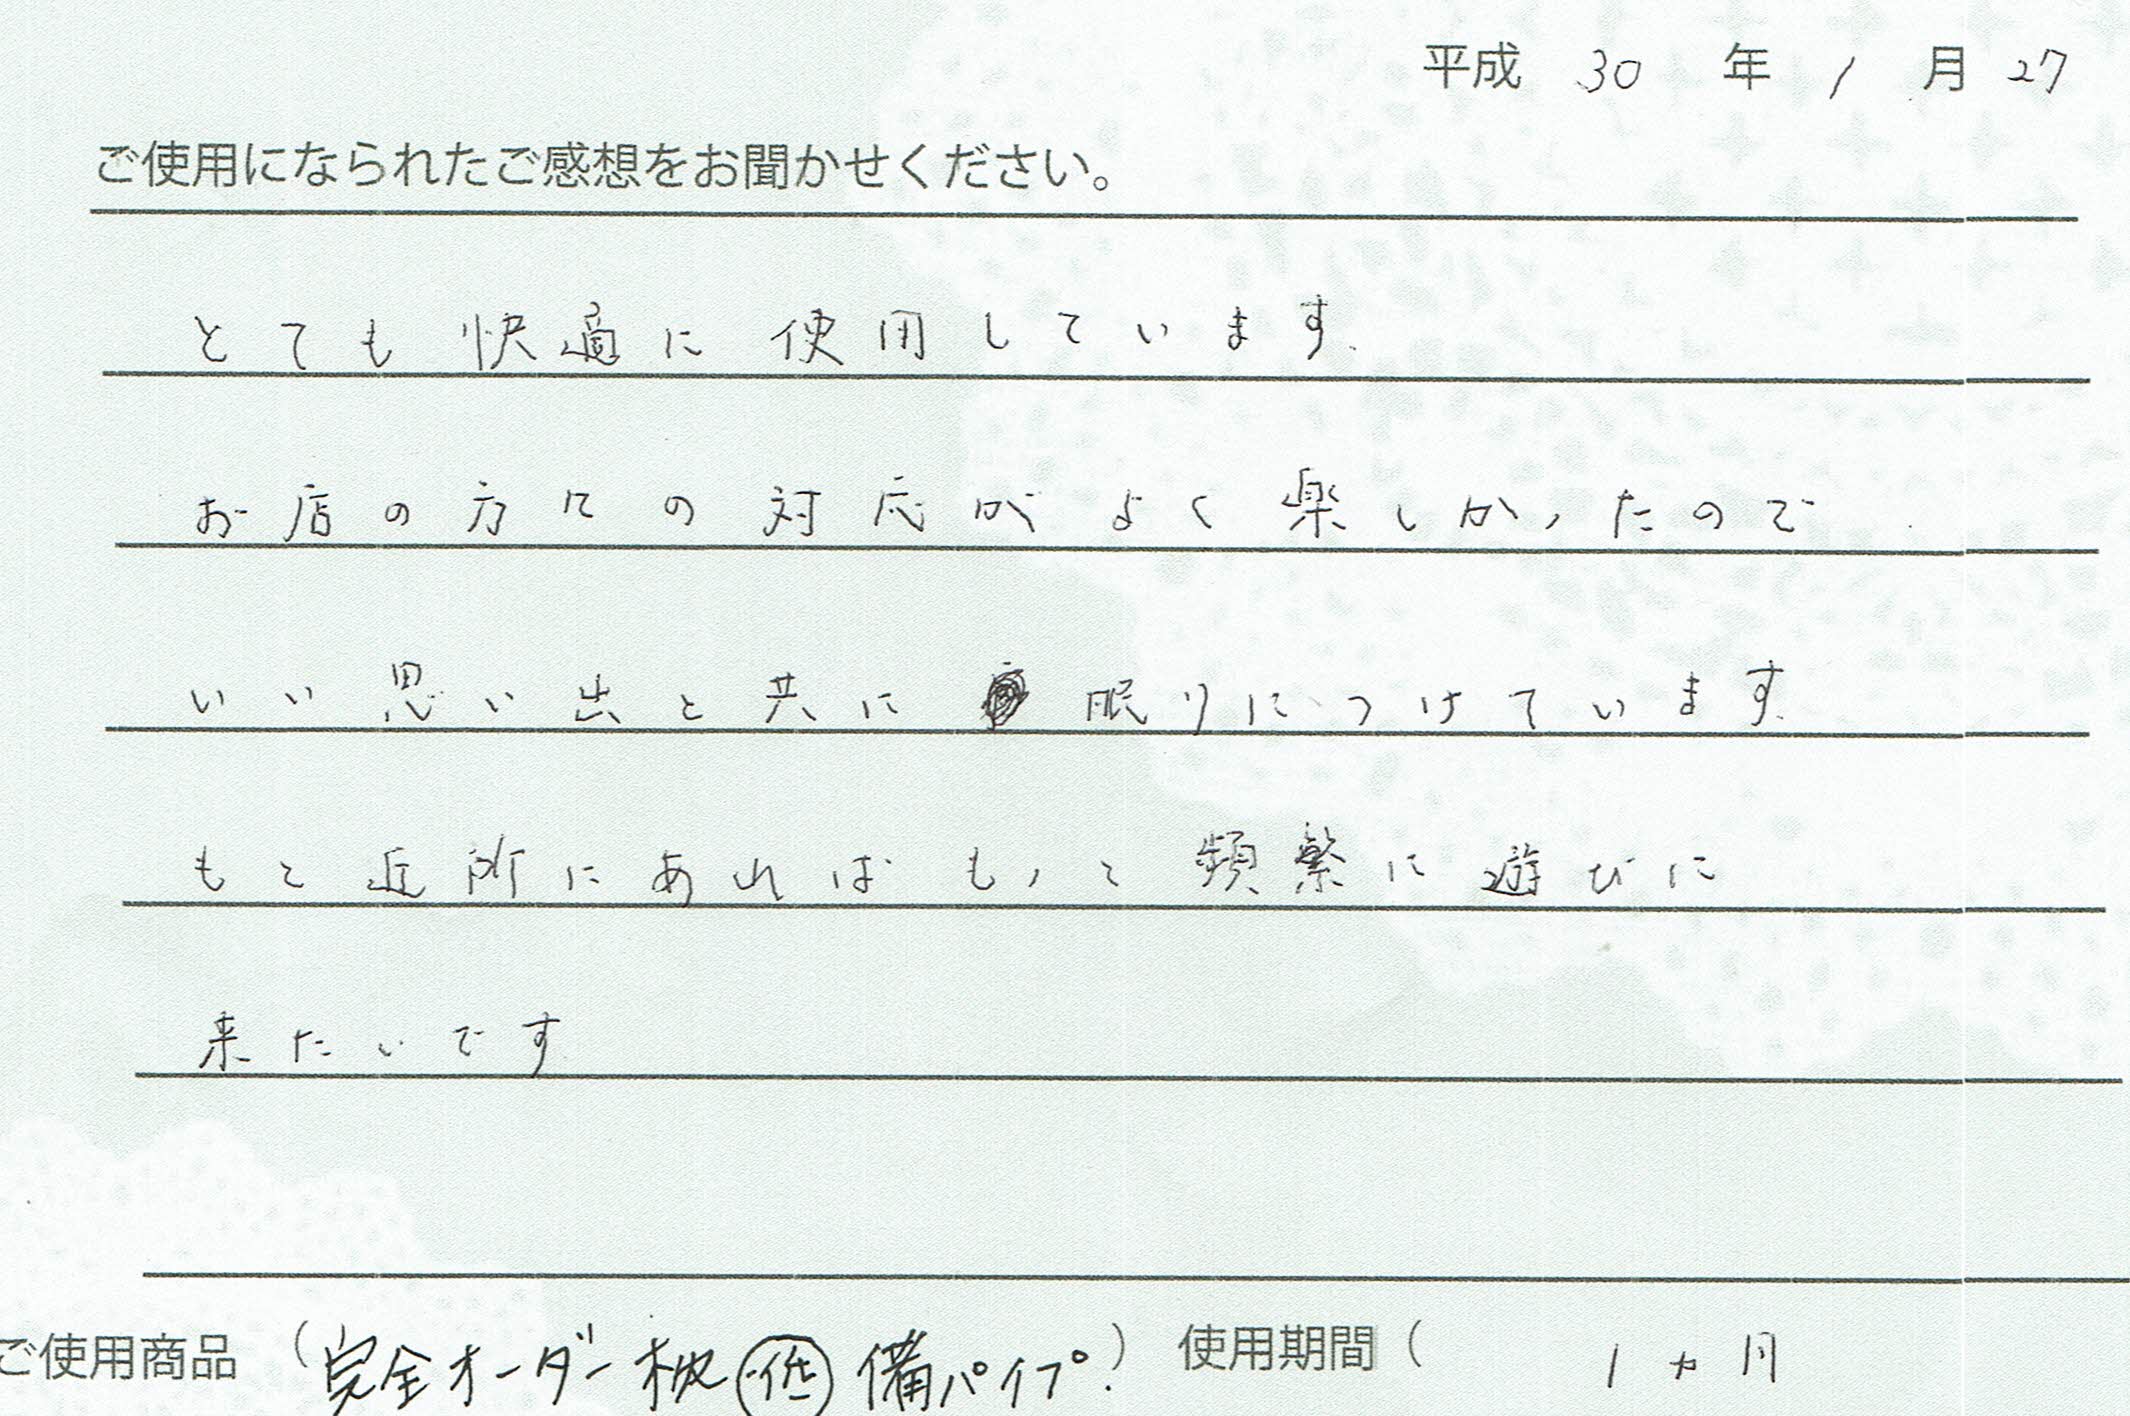 平成 30 年 1 月 27
ご使用になられたご感想をお聞かせください。
とても快適に使用しています.
お店の方々の対応がよく楽しかったので
いい思い出と共に 眠りにつけています.
もと近所にあればもっと頻繁に遊びに
来たいです
ご使用商品 (完全オーダー枕 低 備パイプ.) 使用期間 ( 1ヵ月